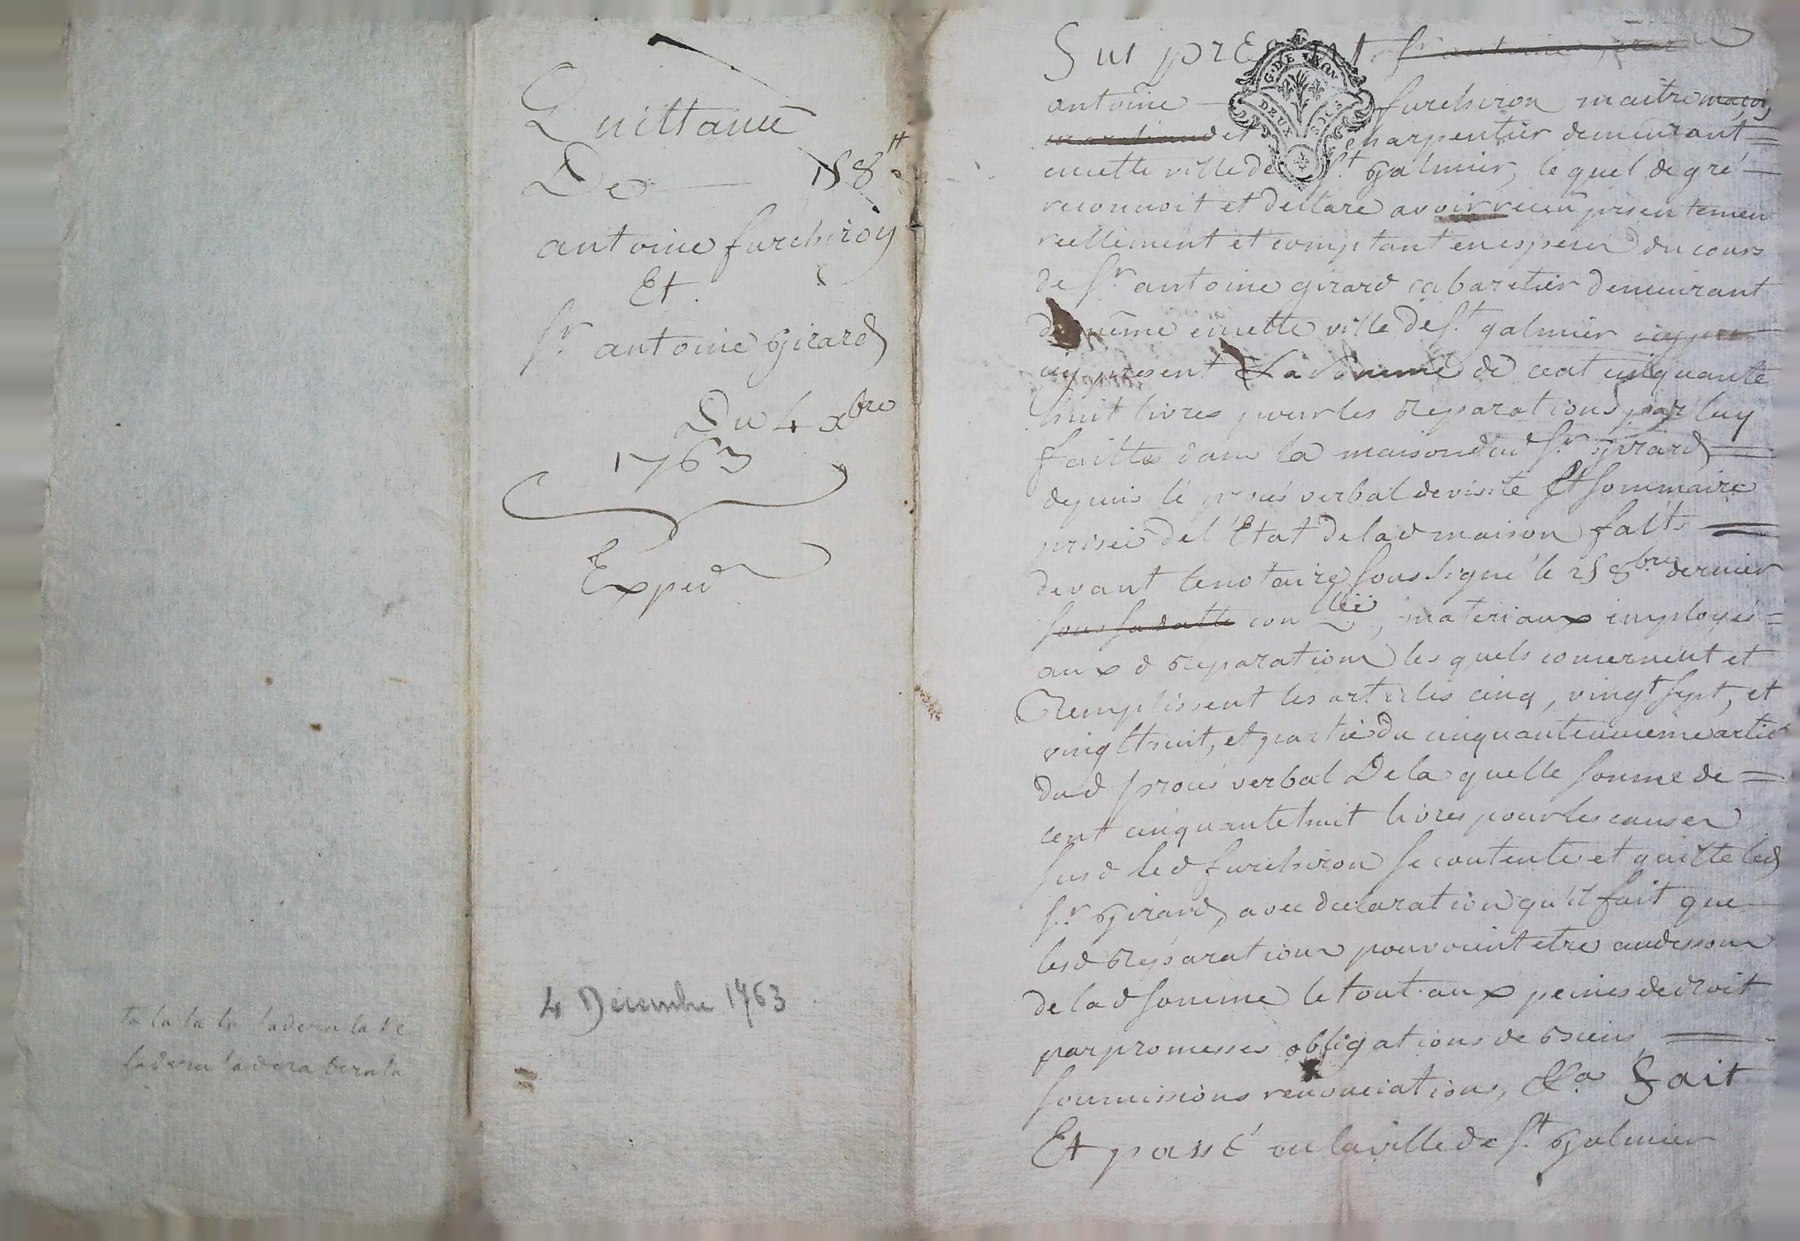 Quittance
De 158 ℔
antoine furchiron
Et
Sr antoine Girard
Du 4 xbre
1763
Exped
4 Décembre 1763
ta la la la ladera la de
ladera ladera derala
Fut présent
G. DE LYON
DEUX SOLS
antoine furchiron maitre maçon
et charpentier demeurant
en cette ville de St Galmier, le quel de gré
reconnoit et declare avoir recu presentement
reellement et comptant en especes du cours
de Sr antoine girard cabaretier demeurant
de même en cette ville de St galmier
icy present La somme de cent cinquante
huit livres pour les reparations par luy
faittes dans la maison dud Sr Girard
depuis le procés verbal de visite Et sommaire
prisée de l'Etat de lad maison fait
devant le notaire soussigné le 25 8bre dernier
sous sa datte con lleé, materiaux employés
aux d reparations les quels concernent et
Remplissent les articles cinq, vingt sept, et
vingt huit, et partie du cinquante article
dud procés verbal De la quelle somme de
cent cinquante huit livres pour les causes
susd led furchiron se contente et quitte led
Sr Girard, avec declaration qu'il fait que
lesd réparations pouvoint etre audessous
de lad somme le tout aux peines de droit
par promesses obligations de biens,
soumissions renonciations, &a Fait
Et passé en la ville de St Galmier